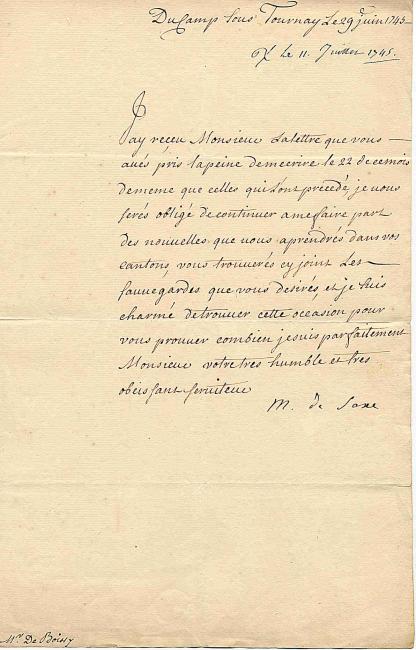 Du Camp sous Tournay Le 29e juin 1745
Le 11. Juillet 1745.
Jay receu Monsieur Lalettre que vous
avés pris lapeine demecrire le 22 de cemois
dememe que celles qui Lont precedé, je vous
serés obligé decontinuer amefaire part
des nouvelles que vous aprendrés dans vos
cantons, vous trouverés cy joint Les
sauvegardes que vous desirés, et je suis
charmé detrouver cette occasion pour
vous prouver combien jesuis parfaitement
Monsieur votre tres humble et tres
obeissant serviteur
M. de Saxe
Mr. De Boissy